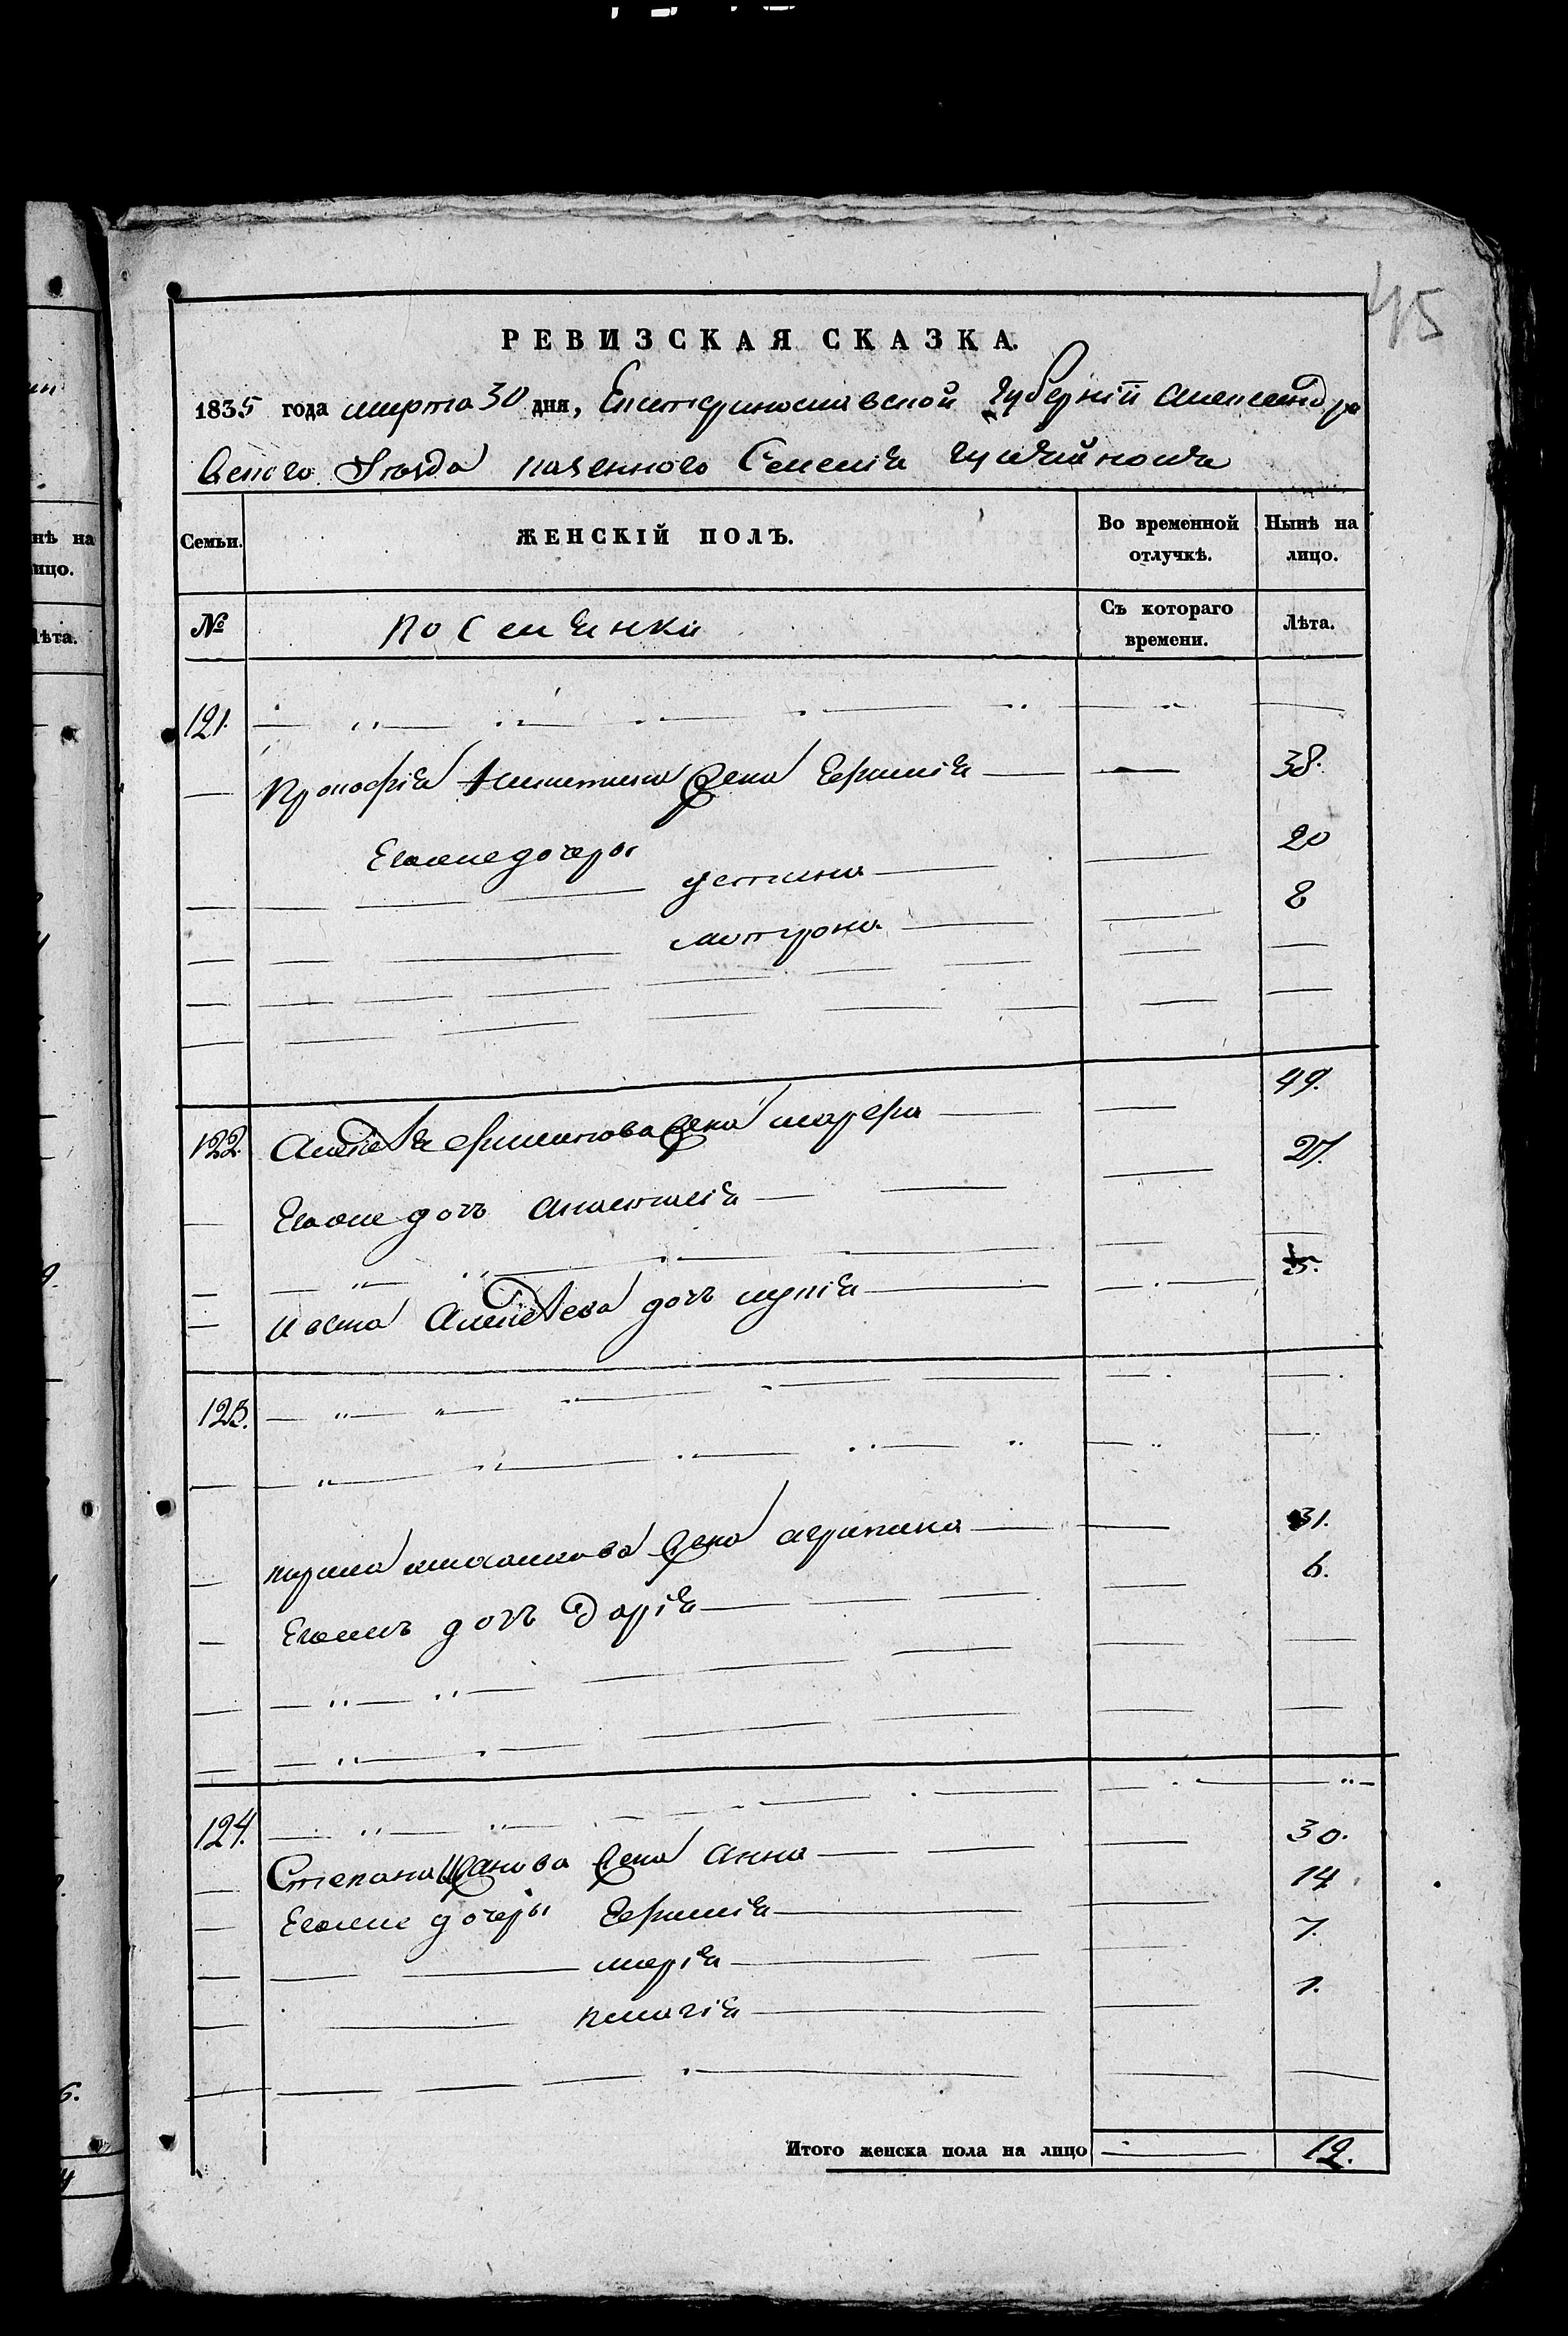 45
РЕВИЗСКАЯ СКАЗКА.
1835 года марта 30 дня, Екатеринославской Губернїи Александро
вского уѣзда казенного Селенїя гуляйполя
Семьи. ЖЕНСКІЙ ПОЛЪ. Во временной отлучкѣ. Нынѣ на лицо.
№ поселянки Съ котораго времени. Лѣта.
121.
Прокофїя Никитина жена Ефимїя 38.
Егоже дочеры устина 20
мотрона 8
122. Алексѣя ефимова жена марфа 49.
Егоже дочь анастасїя 27.
Алексѣева дочь 5.
123.
жена агрипина 31.
Егожъ дочь Дарїя 6.
124.
Степана Иванова жена анна 30.
Егоже дочеры Ефимїя 14
марїя 7.
1.
Итого женска пола на лицо 12.